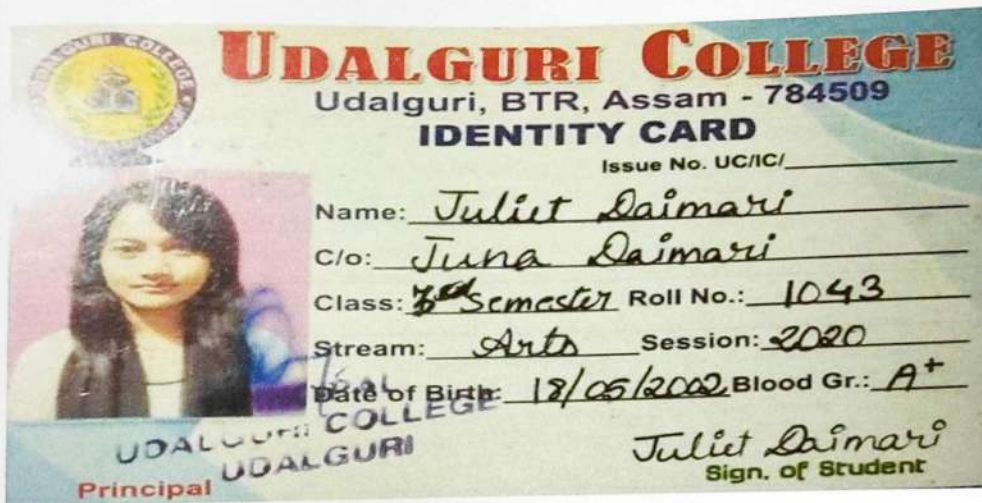 UDALGURI COLLEGE
UDALGURI COLLEGE
Udalguri, BTR, Assam - 784509
IDENTITY CARD
Issue No. UC/IC/
Name: Juliet Daimari
C/o: Juna Daimari
Class: 3rd Semester Roll No.: 1043
Stream: Arts Session: 2020
Date of Birth: 18/05/2002 Blood Gr.: A+
UDALGURI COLLEGE
UDALGURI
Juliet Daimari
Principal
Sign. of Student